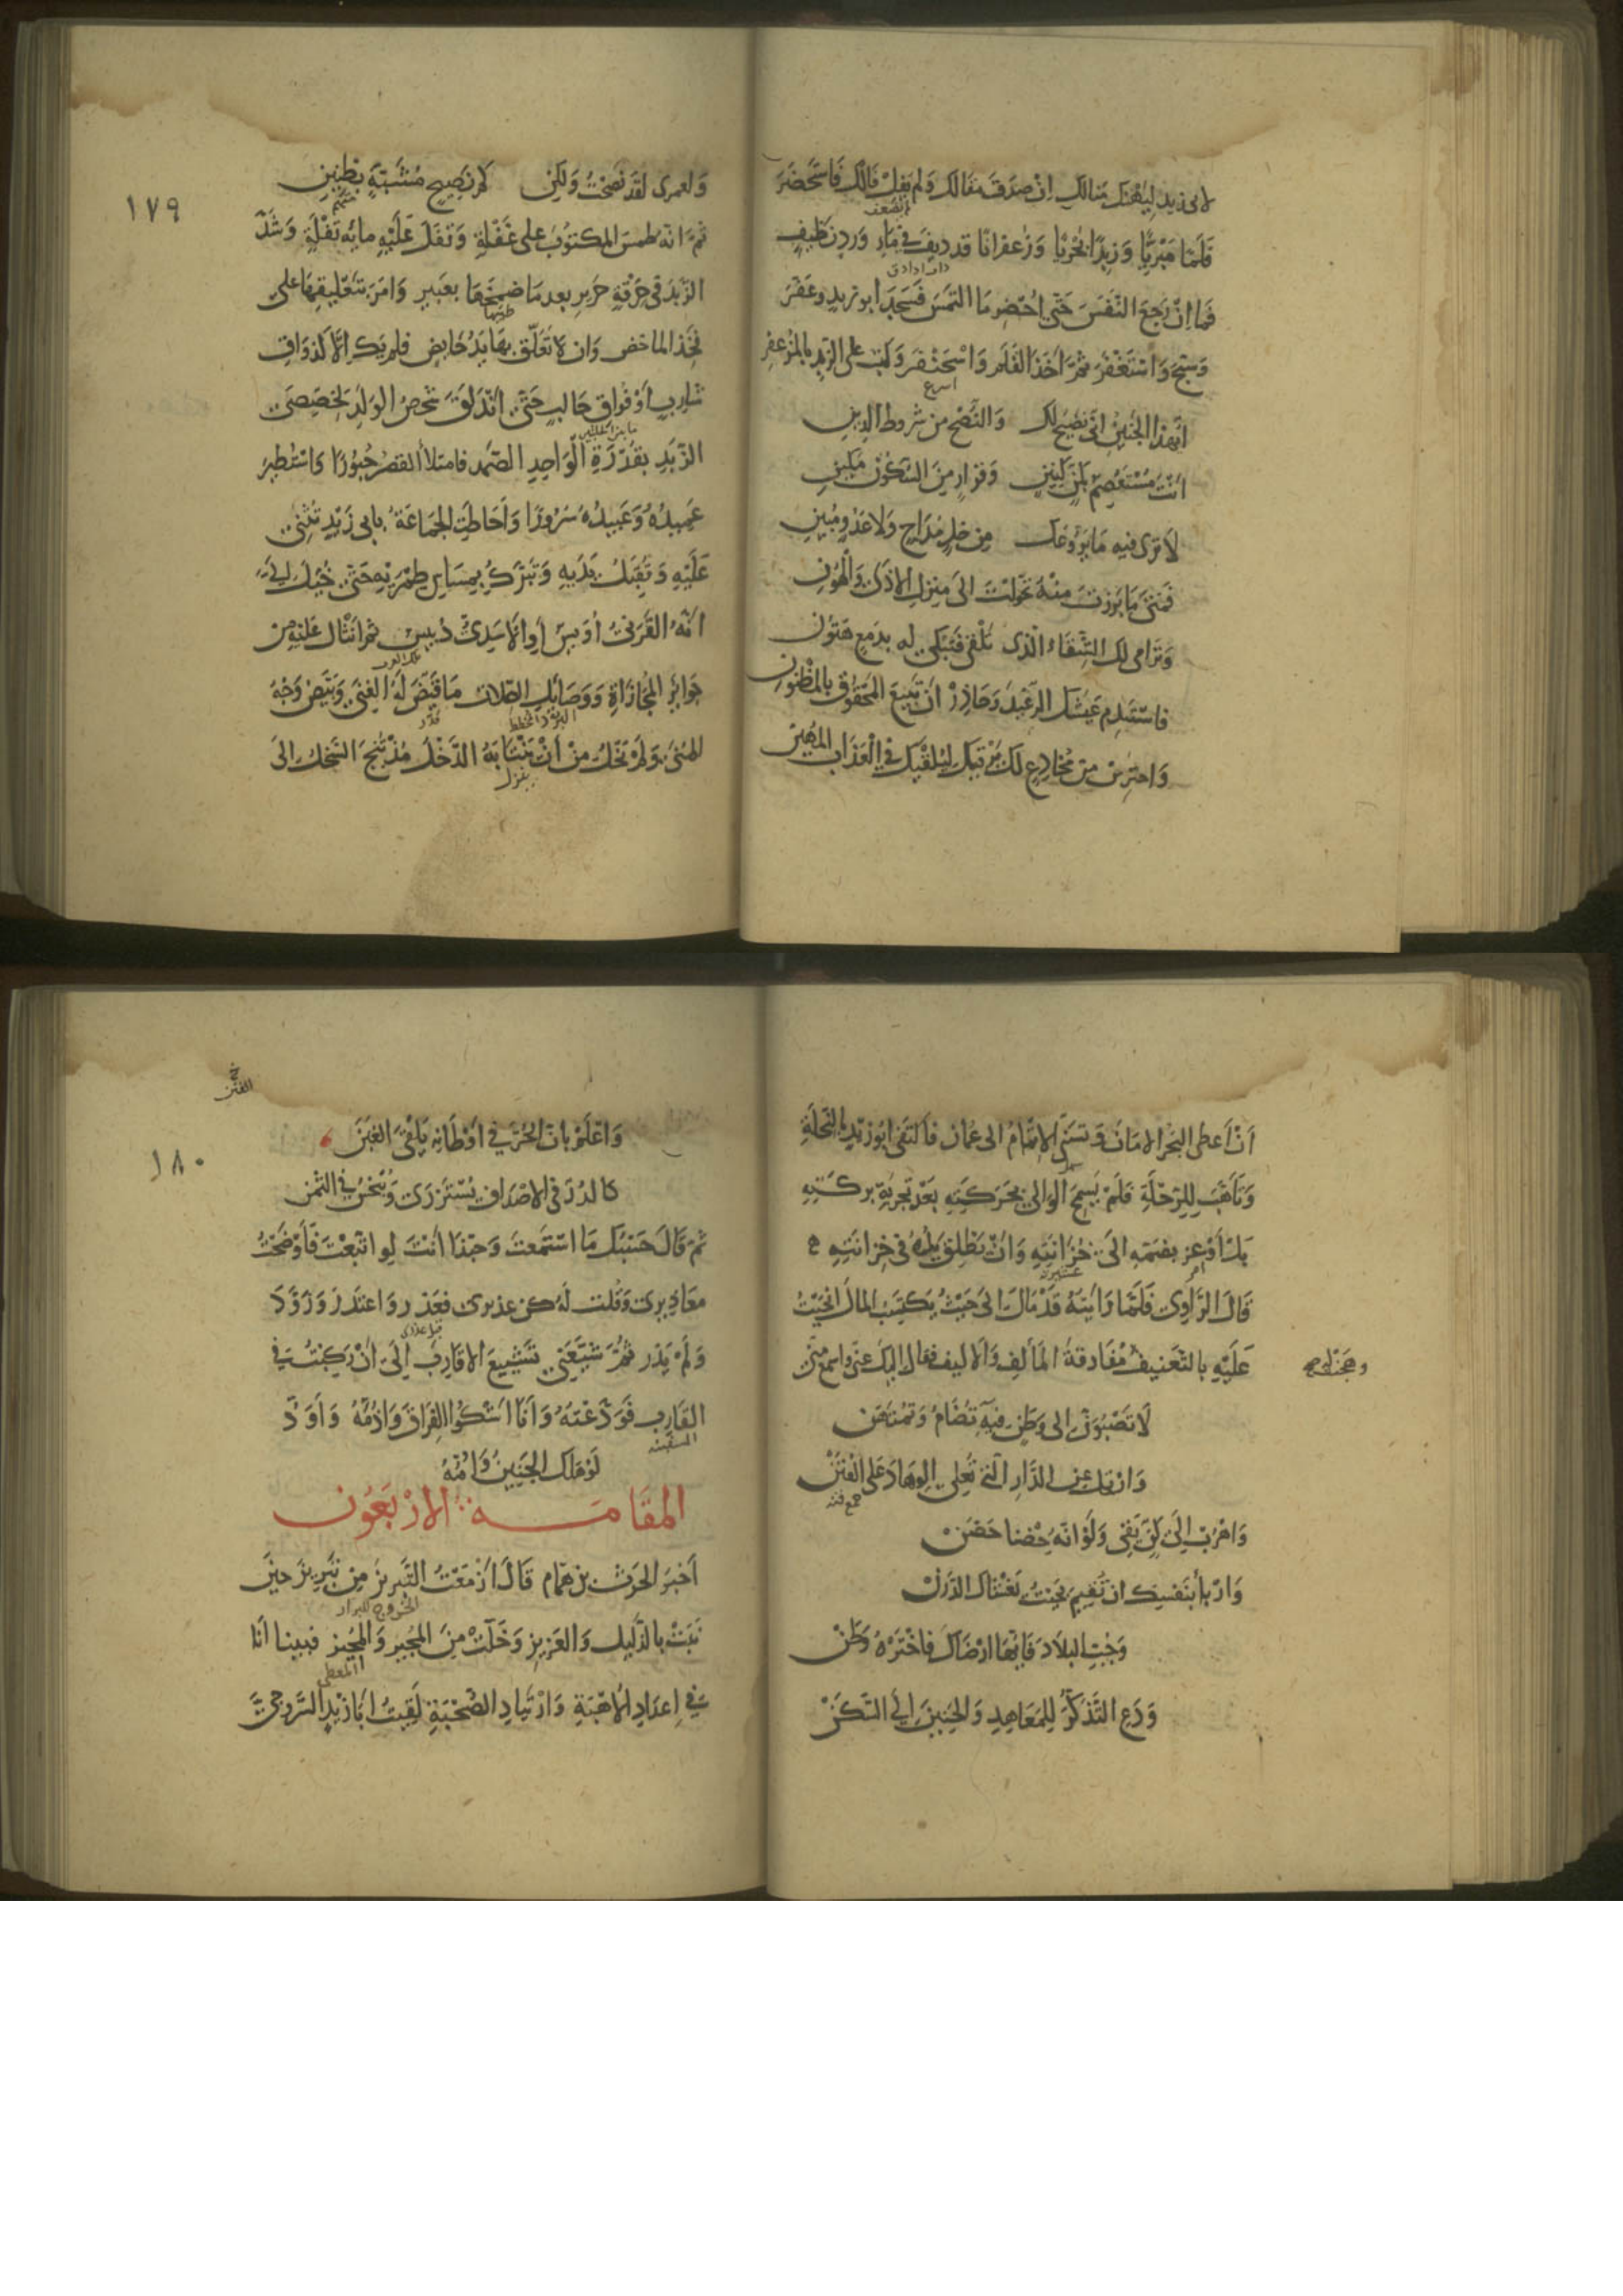 لابى زيد ليهنك منالك ان صدق مقالك ولم يفل فالك فاستحضر
قلما مبريا وزبدا بحريا وزعفرانا قد ديف في ماء ورد نظيف
فما ان رجع النفس حتى احضر ما التمس فسجد ابو زيد وعفر
وسبح واستغفر ثم اخذ القلم واسحنفر وكتب على الزبد بالمزعفر
اسرع
ايهذا الجنين انى نصيح لك والنصح من شروط الدين
انت مستعصم بكن كنين وقرار من السكون مكين
لا ترى فيه ما يروعك من خل مداج ولا عدو مبين
فمتى ما برزت منه تحولت الى منزل الاذى والهون
وتراءى لك الشقاء الذى تلقى فتبكى له بدمع هتون
فاستدم عيشك الرغيد وحاذر ان تبيع المحقوق بالمظنون
واحترس من مخادع لك يرقيك ليلقيك في العذاب المهين
١٧٩
ولعمرى لقد نصحت ولكن كم نصيح مشبه بظنين
متهم
ثم انه طمس المكتوب على غفلة وتفل عليه مائة تفلة وشد
الزبد في خرقة حرير بعد ما ضمخها بعبير وامر بتعليقها على
فخذ الماخض وان لا تعلق بها يد حايض فلم يك الا كذواق
شارب او فواق حالب حتى اندلق شخص الولد لخصيصى
ما بين الحلبتين
الزبد بقدرة الواحد الصمد فامتلأ القصر حبورا واستطير
عميده وعبيده سرورا واحاطت الجماعة بابى زيد تثنى
عليه وتقبل يديه وتتبرك بمساس طمريه حتى خيل الي
انه القرنى اويس او الاسدى دبيس ثم انثال عليه من
جوايز المجازاة ووصايل الصلات ما قيض له الغنى وبيض وجه
قدر
المنى ولم تزل من ان ينتابه الدخل مذ نتج السخل الى
ان اعطى البحر الامان وتسنى الاتمام الى عمان فاكتفى ابو زيد بالنحلة
وتاهب للرحلة فلم يسمح الوالى بحركته بعد تجربة بركته
بل اوعز بضمه الى خزانته وان تطلق يده في خزانته
امر
عشيرته
قال الراوى فلما رايته قد مال الى حيث يكتسب المال انحيت
عليه بالتعنيف مفارقة المألف والاليف فقال اليك عنى واسمع منى
لا تصبون الى وطن فيه تضام وتمتهن
وارحل عن الدار التى تعلى الوهاد على القنن
جمع قنة
واهرب الى كن يقى ولو انه حضنا حضن
واربأ بنفسك ان تقيم بحيث يغشاك الدرن
وجب البلاد فايها ارضاك فاختره وطن
ودع التذكر للمعاهد والحنين الى السكن
١٨٠
واعلم بان الحر في اوطانه يلقى الغبن
كالدر في الاصداف يستزرى ويبخس في الثمن
ثم قال حسبك ما استمعت وحبذا انت لو اتبعت فأوضحت
معاذيرى وقلت له كن عذيرى فعذر واعتذر وزود
ولم يذر ثم شيعنى تشييع الاقارب الى ان ركبت في
القارب فودعته وانا اشكوا الفراق واذمه واود
السفينة
لو هلك الجنين وامه
المقامة الاربعون
اخبر الحرث بن همام قال ازمعت التبريز من تبريز حين
الخروج
نبت بالذليل والعزيز وخلت من المجير والمجيز فبينا انا
المعطى
في اعداد الاهبة وارتياد الصحبة لقيت ابا زيد السروجى